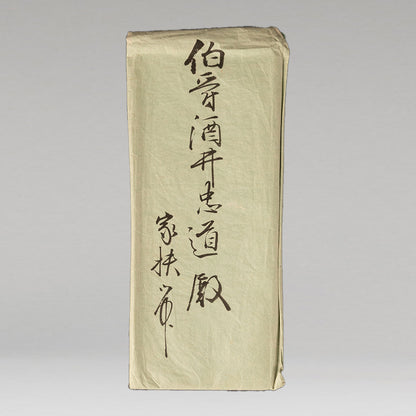 伯爵酒井忠道殿
家扶